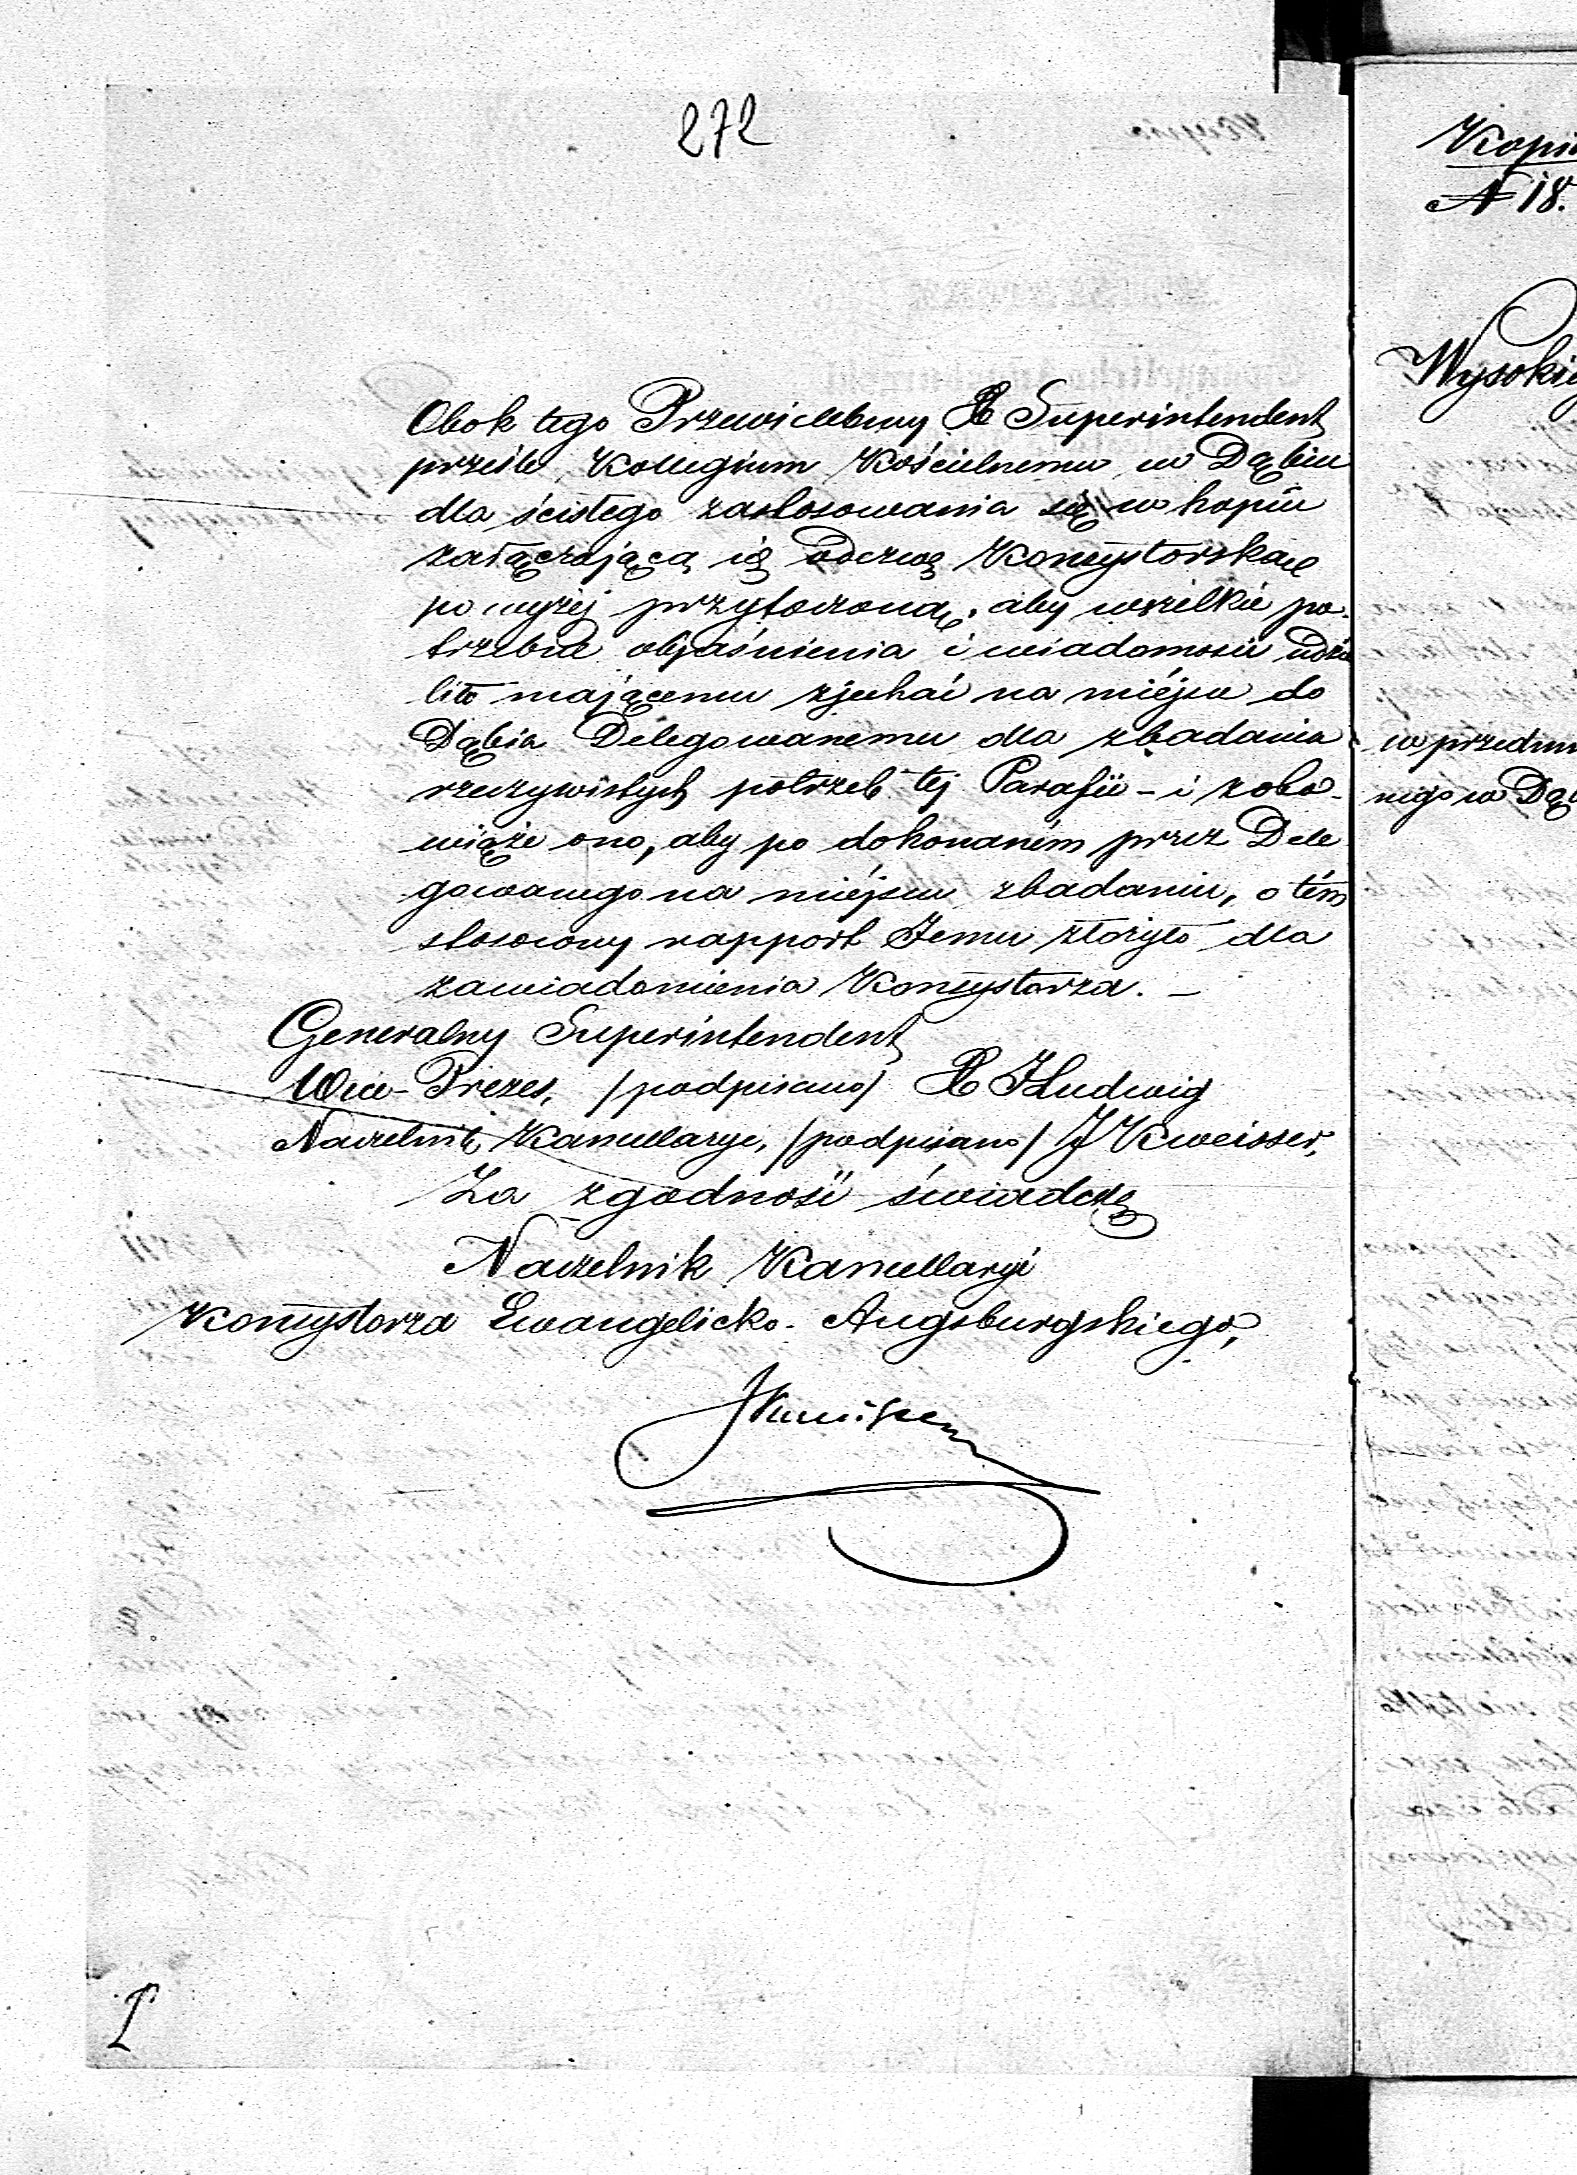 272
Obok tego Przewielebny X Superintendent
prześle Kollegium Kościelnemu w Dąbiu
dla ścisłego zastosowania się w kopii
załączającą się odezwę Konsystorską
powyżej przytoczoną, aby wszelkie po-
trzebne objaśnienia i wiadomości udzie
liło mającemu zjechać na miejsce do
Dąbia Delegowanemu dla zbadania
rzeczywistych potrzeb tej Parafii - i zobo-
wiąże ono, aby po dokonaném przez Dele
gowanego na miejscu zbadaniu, o tém
stosowny rapport Jemu złożyło dla
zawiadomienia Konsystorza. -
Generalny Superintendent
Wice-Prezes, /podpisano/ X J Ludwig
Naczelnik Kancellaryi, /podpisano/ J Kweisser,
Za zgodność świadczę
Naczelnik Kancellaryi
Konsystorza Ewangelicko-Augsburgskiego,
Kopi
N 18.
Wysoki
w przedm
nego w Dąb